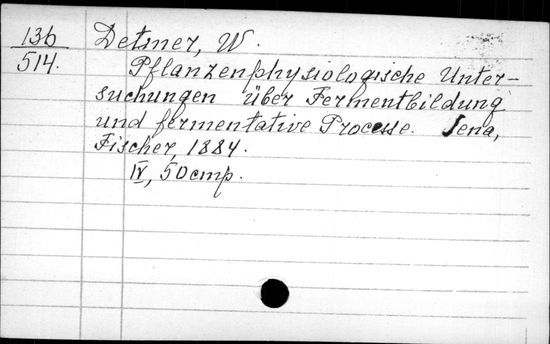 136
514.
Detmer, W.
Pflanzenphysiologische Unter-
suchungen über Fermentbildung
und fermentative Processe. Jena,
Fischer, 1884.
IV, 50 стр.